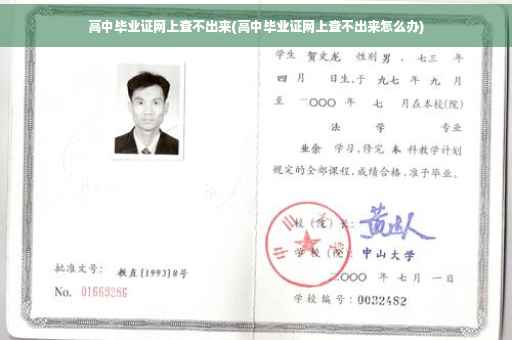 高中毕业证网上查不出来(高中毕业证网上查不出来怎么办)
学生 贺文龙 性别 男 、七三 年
四 月 日生,于 九七 年 九 月
至 二〇〇〇 年 七 月在本校(院)
法 学 专业
业余 学习,修完 本 科教学计划
规定的全部课程,成绩合格,准予毕业。
校 (院) 长:
学 校 (院): 中山大学
二〇〇〇 年 七 月 一 日
学校编号: 0032482
批准文号: 教直[1993]8号
No. 01669286